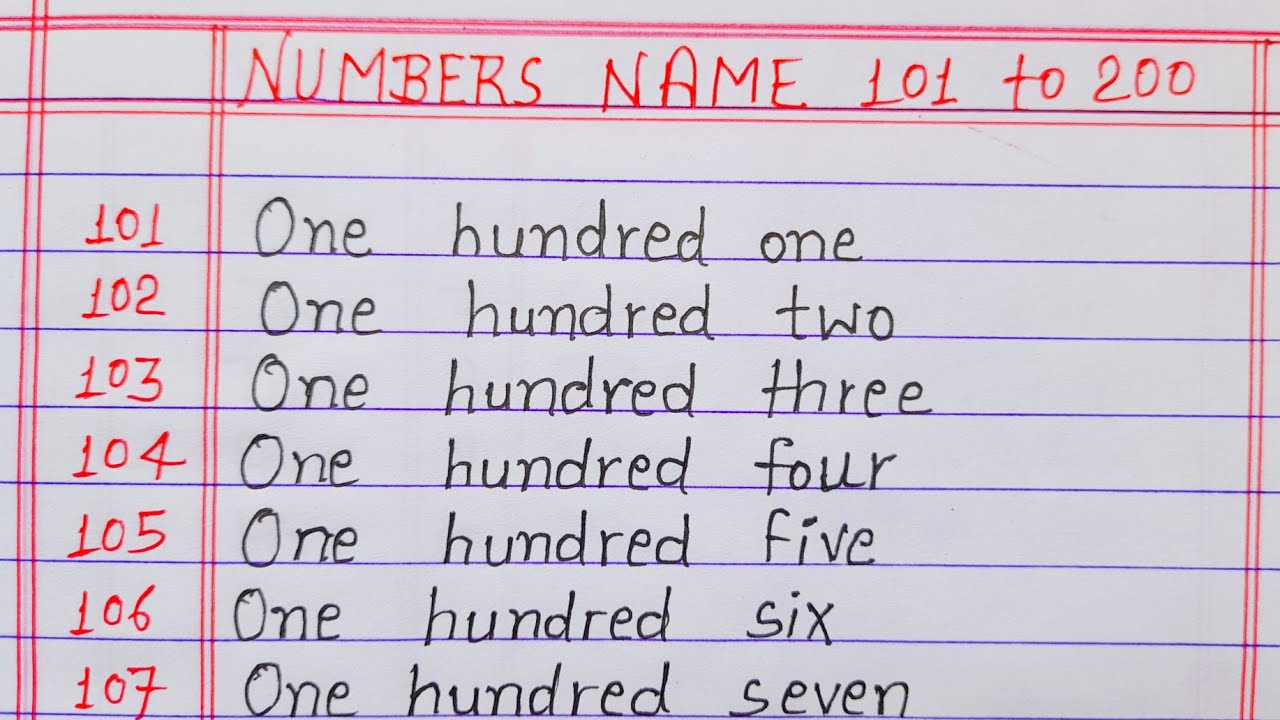 NUMBERS NAME 101 to 200
101 One hundred one
102 One hundred two
103 One hundred three
104 One hundred four
105 One hundred five
106 One hundred six
107 One hundred seven